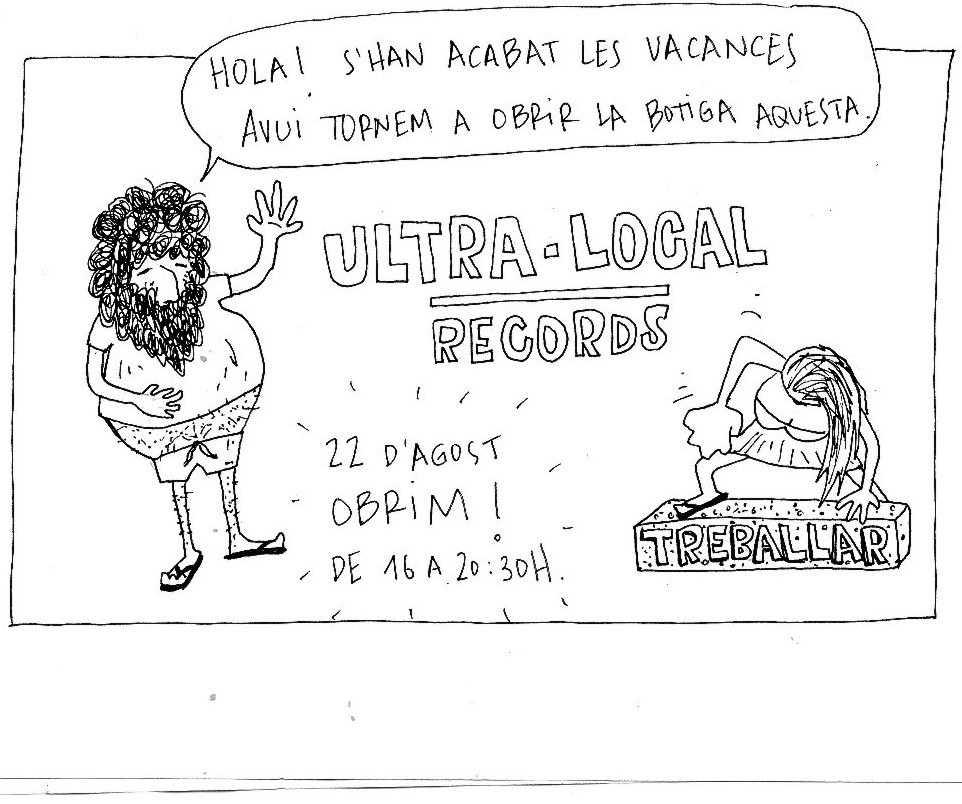 HOLA! S'HAN ACABAT LES VACANCES
AVUI TORNEM A OBRIR LA BOTIGA AQUESTA.
ULTRA-LOCAL
RECORDS
22 D'AGOST
OBRIM!
DE 16 A 20:30H.
TREBALLAR